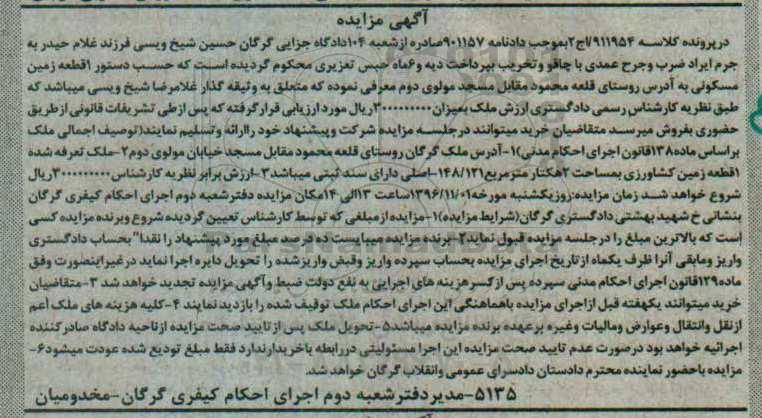 آگهی مزایده
درپرونده کلاسه ۹۱۱۹۵۴/اج۲بموجب دادنامه ۹۰۱۱۵۷صادره ازشعبه ۱۰۴دادگاه جزایی گرگان حسین شیخ ویسی فرزند غلام حیدر به
جرم ایراد ضرب وجرح عمدی با چاقو وتخریب بپرداخت دیه و۶ماه حبس تعزیری محکوم گردیده است که حسب دستور ۱قطعه زمین
مسکونی به آدرس روستای قلعه محمود مقابل مسجد مولوی دوم معرفی نموده که متعلق به وثیقه گذار غلامرضا شیخ ویسی میباشد که
طبق نظریه کارشناس رسمی دادگستری ارزش ملک بمیزان ریال مورد ارزیابی قرار گرفته که پس از طی تشریفات قانونی از طریق
حضوری بفروش میرسد متقاضیان خرید میتوانند درجلسه مزایده شرکت وپیشنهاد خود راارائه وتسلیم نمایند(توصیف اجمالی ملک
براساس ماده۱۳۸قانون اجرای احکام مدنی)۱-آدرس ملک گرگان روستای قلعه محمود مقابل مسجد خیابان مولوی دوم۲-ملک تعرفه شده
۱قطعه زمین کشاورزی بمساحت ۲هکتار مترمربع۱۴۸/۱۲۱-اصلی دارای سند ثبتی میباشد۳-ارزش برابر نظریه کارشناس ریال
شروع خواهد شد زمان مزایده:روزیکشنبه مورخه۱۳۹۶/۱۱/۰۱ساعت ۱۳الی ۱۴مکان مزایده دفترشعبه دوم اجرای احکام کیفری گرگان
بنشانی خ شهید بهشتی دادگستری گرگان(شرایط مزایده)۱-مزایده ازمبلغی که توسط کارشناس تعیین گردیده شروع وبرنده مزایده کسی
است که بالاترین مبلغ را درجلسه مزایده قبول نماید۲-برنده مزایده میبایست ده درصد مبلغ مورد پیشنهاد را نقدا" بحساب دادگستری
واریز ومابقی آنرا ظرف یکماه ازتاریخ اجرای مزایده بحساب سپرده واریز وقبض واریز شده را تحویل دایره اجرا نماید درغیراینصورت وفق
ماده۱۲۹قانون اجرای احکام مدنی سپرده پس ازکسر هزینه های اجرایی به نفع دولت ضبط وآگهی مزایده تجدید خواهد شد ۳-متقاضیان
خرید میتوانند یکهفته قبل ازاجرای مزایده باهماهنگی این اجرای احکام ملک توقیف شده را بازدید نمایند ۴-کلیه هزینه های ملک أعم
ازنقل وانتقال وعوارض ومالیات وغیره برعهده برنده مزایده میباشد۵-تحویل ملک پس از تایید صحت مزایده ازناحیه دادگاه صادرکننده
اجرائیه خواهد بود درصورت عدم تایید صحت مزایده این اجرا مسئولیتی دررابطه باخریدارندارد فقط مبلغ تودیع شده عودت میشود۶-
مزایده باحضور نماینده محترم دادستان دادسرای عمومی وانقلاب گرگان خواهد شد.
۵۱۳۵-مدیردفترشعبه دوم اجرای احکام کیفری گرگان-مخدومیان